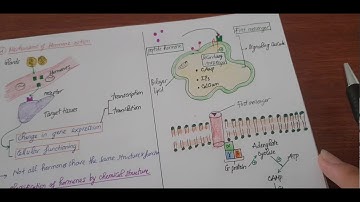 Mechanism of Hormone action
Glands
Hormones
receptor
Target tissues
transcription
translation
Change in gene expression
Cellular functioning
Not all hormones share the same structure &
of hormones by chemical structure
First messenger
peptide hormone
Secondary
messenger
Signaling cascade
cAMP
IP3
lipid
First messenger
G protein
Adenylate
cyclase
ATP
cAMP